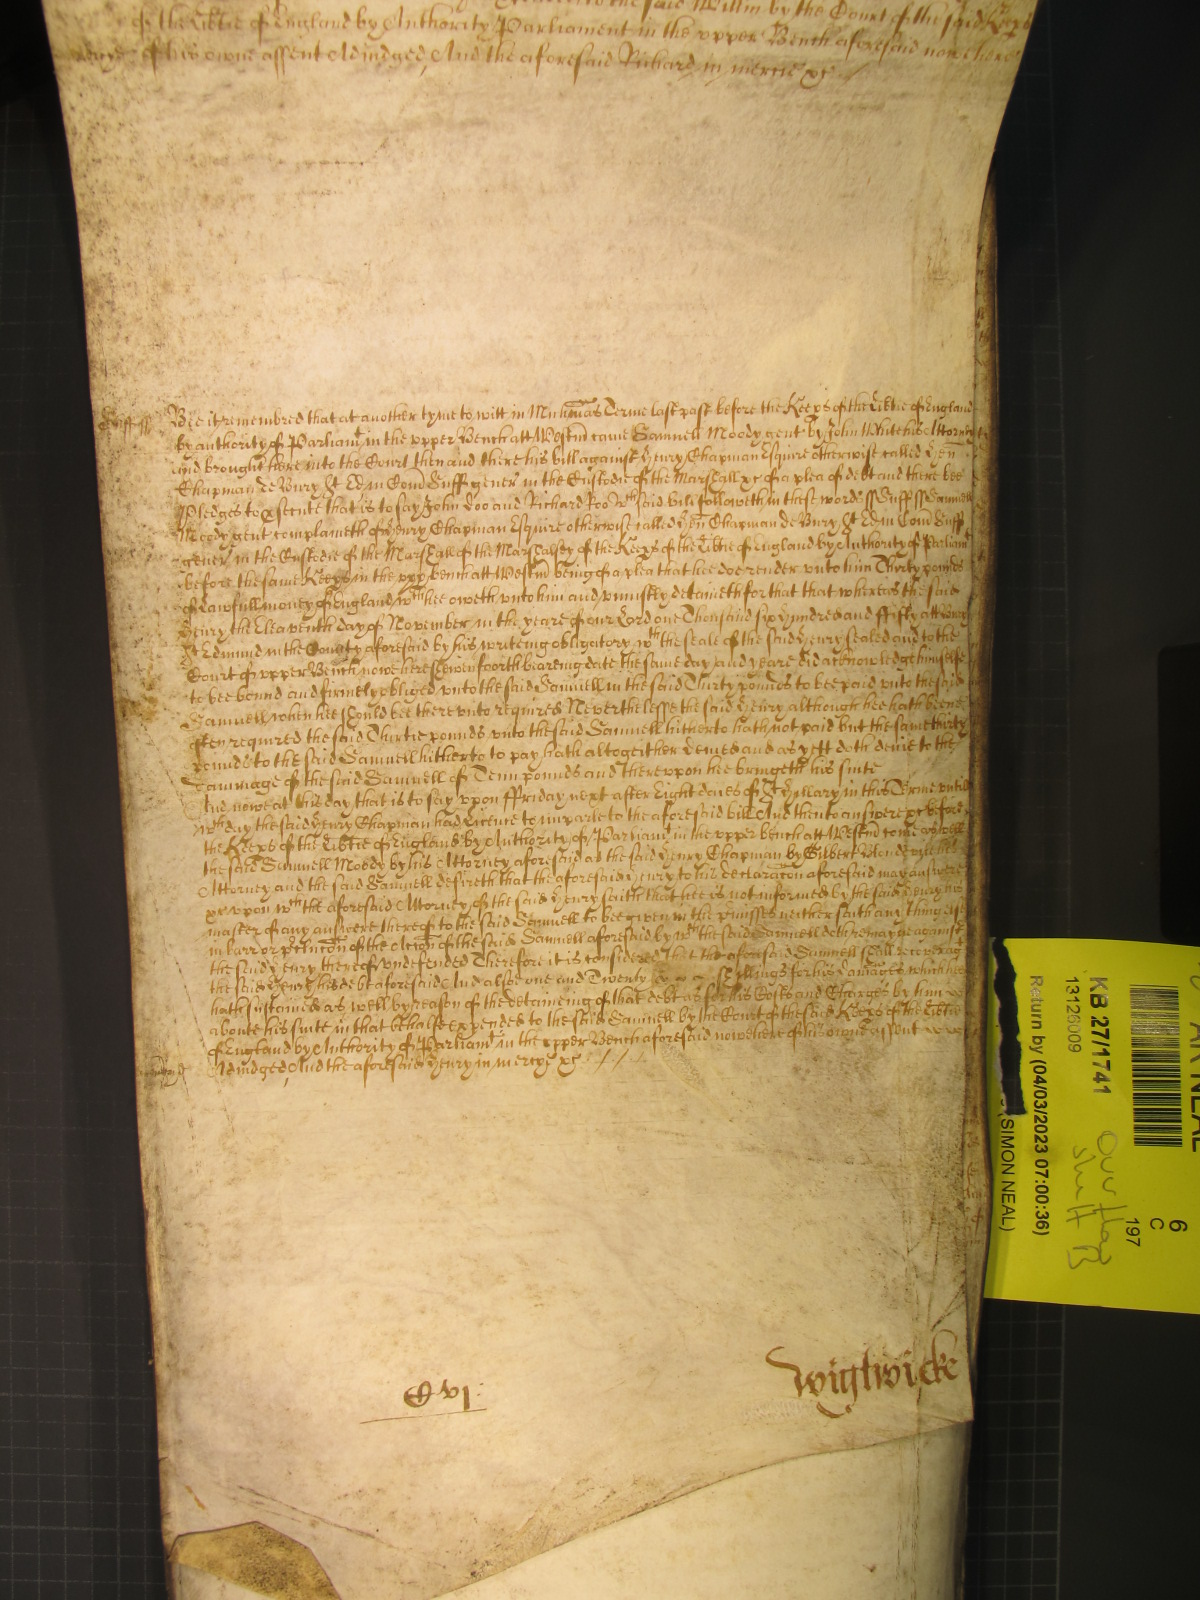 to the said Willm by the Court of the said Keeps
of the Libtie of England by Authority of Parliament in the upper Bench aforesaid nowe here
of his owne assent Adjudged, And the aforesaid Richard in mercie &c
Suff ss Bee it remembred that at another tyme to witt in Michmas Terme last past before the Keeps of the Libtie of England
by authority of Parliamt in the upper Bench att Westm came Samuell Moody gent by John White his Attorney
And brought here into the Court then and there his bill against Henry Chapman Esquire otherwise called Hen
Chapman de Bury St Edm in Com Suff gener in the Custodie of the Marshall &c of a plea of debt and there bee
Pledges to prosecute that is to say John Doo and Richard Roo Wch said bill followeth in these words ss Suff ss Samuell
Moody gent complaineth of Henry Chapman Esquire otherwise called Hen Chapman de Bury St Edm in Com Suff
gener in the Custodie of the Marshall of the Marshalsey of the Keeps of the Libtie of England by Authority of Parliamt
before the same Keeps in the upp bench att Westm being of a plea that hee doe render unto him Thirty pounds
of Lawfull money of England wch hee oweth unto him and unjustly detaineth for that that whereas the said
Henry the Eleaventh day of November in the yeare of our Lord one Thousand six Hundred and ffifty att Bury
St Edmund in the County aforesaid by his writeing obligatory wth the seale of the said Henry sealed and to the
Court of upper Bench nowe here shewen foorth beareing date the same day and yeare did acknowledge himselfe
to bee bound and firmely obliged unto the said Samuell in the said Thirty pounds to bee paid unto the said
Samuell when hee should bee there unto required Neverthelesse the said Henry although hee hath beene
often required the said Thirtie pounds unto the said Samuell hitherto hath not paid but the same thirty
pounds to the said Samuell hitherto to pay hath altogeither denied and as yett doth denie to the
Dammage of the said Samuell of Tenn pounds and thereupon hee bringeth his suite
And nowe at this day that is to say upon ffriday next after Eight daies of St Hillary in this Terme untill
wch day the said Henry Chapman had Licence to imparle to the aforesaid bill And then to answere &c before
the Keeps of the Libtie of England by Authority of Parliamt in the upper bench att Westm come as well
the said Samuell Moody by his Attorney aforesaid as the said Henry Chapman by Gilbert his
Attorney and the said Samuell desireth that the aforesaid Henry to his declaration aforesaid may answere
&c upon wch the aforesaid Attorney of the said Henry saith that hee is not informed by the said Henry his
master of any answere thereof to the said Samuell to bee given in the premisses neither saith any thing else
in barr or of the Action of the said Samuell aforesaid by wch the said Samuell doth remayne against
the said Henry thereof undefended Therefore it is considered that the aforesaid Samuell shall recover agt
the said Henry his debt aforesaid And alsoe one and Twenty shillings for his damages which hee
hath sustained as well by reason of the detaineing of that debt as for his Costs and Charges by him
aboute his suite in that behalfe expended to the said Samuell by the Court of the said Keeps of the Libtie
of England by Authority of Parliamt in the upper Bench aforesaid nowe here of his owne assent
Adjudged, And the aforesaid Henry in mercie &c
Wightwicke
KB 27/1741
13126009
Return by (04/03/2023 07:00:36)
(SIMON NEAL)
6
C
197